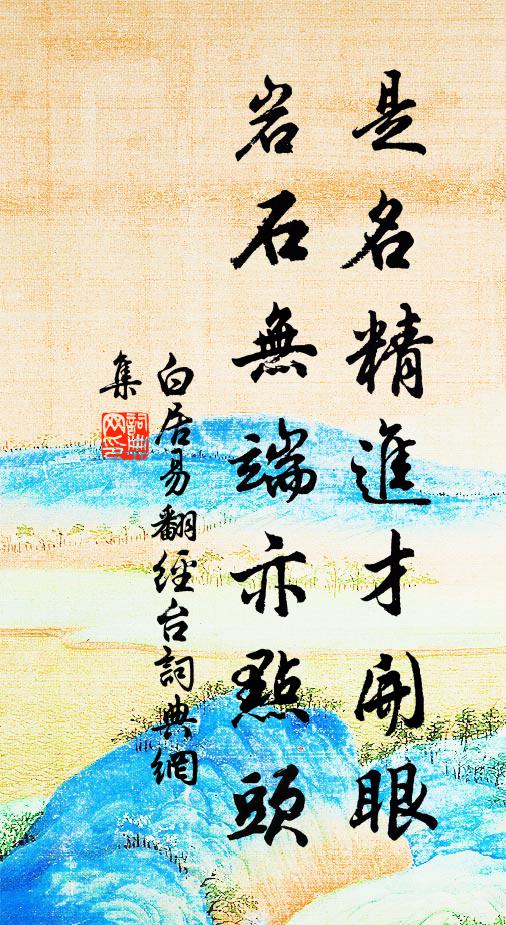 是名精進才開眼
岩石無端亦點頭
白居易翻經台詞典網
集
詞典網